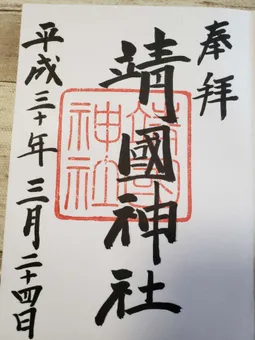 奉拝
靖國神社
平成三十年三月二十四日
靖國神社